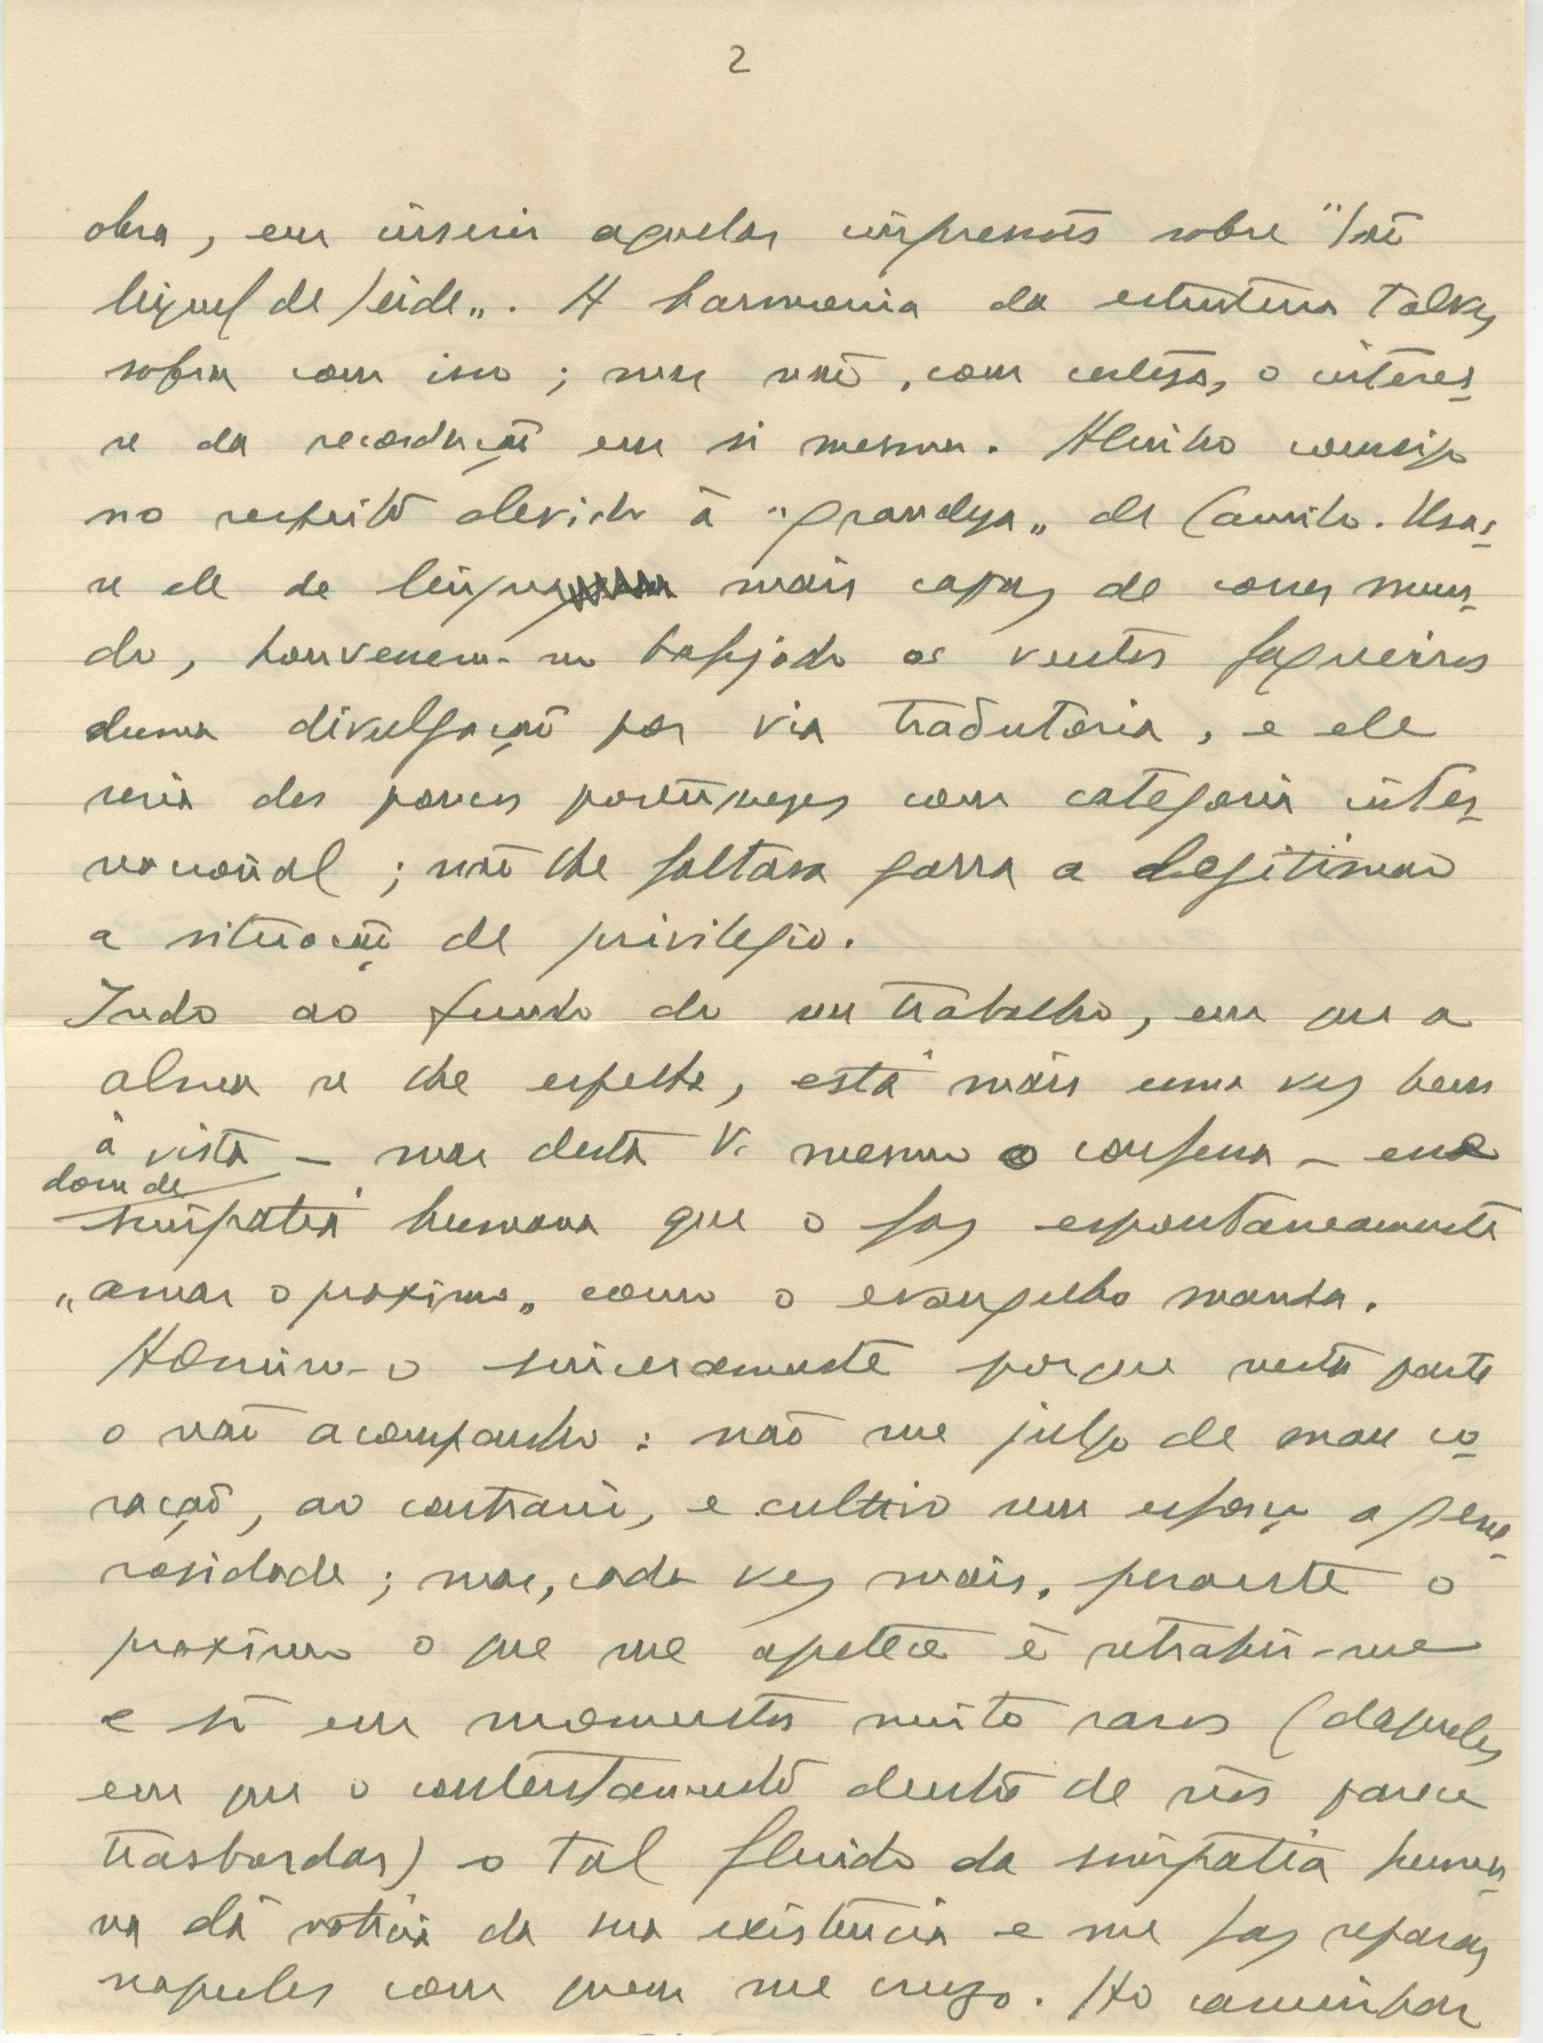 2
obra, em inserir aquelas impressões sobre "São
Miguel de Seide". A harmonia da estrutura talvez
sofra com isso; mas não, com certeza, o interes-
se da recordação em si mesma. Alinho consigo
no respeito devido à "grandeza" de Camilo. Usas-
se ele de língua mais capaz de correr mun-
do, houvessem-no bafejado os ventos fagueiros
duma divulgação por via tradutória, e ele
seria dos poucos portugueses com categoria inter-
nacional; não lhe faltava garra a legitimar
a situação de privilégio.
Indo ao fundo do seu trabalho, em que a
alma se lhe espelha, está mais uma vez bem
à vista — mas desta V. mesmo o confessa — esse
dom de
simpatia humana que o faz espontaneamente
"amar o proximo" como o evangelho manda.
Admiro-o sinceramente porque nesta parte
o não acompanho: não me julgo de mau co-
ração, ao contrário, e cultivo sem esforço a gene-
rosidade; mas, cada vez mais, perante o
proximo o que me apetece é retrahir-me
e só em momentos muito raros (daqueles
em que o contentamento dentro de nós parece
trasbordar) o tal fluido da simpatia huma-
na dá notícia da sua existência e me faz reparar
naqueles com quem me cruzo. Ao caminhar